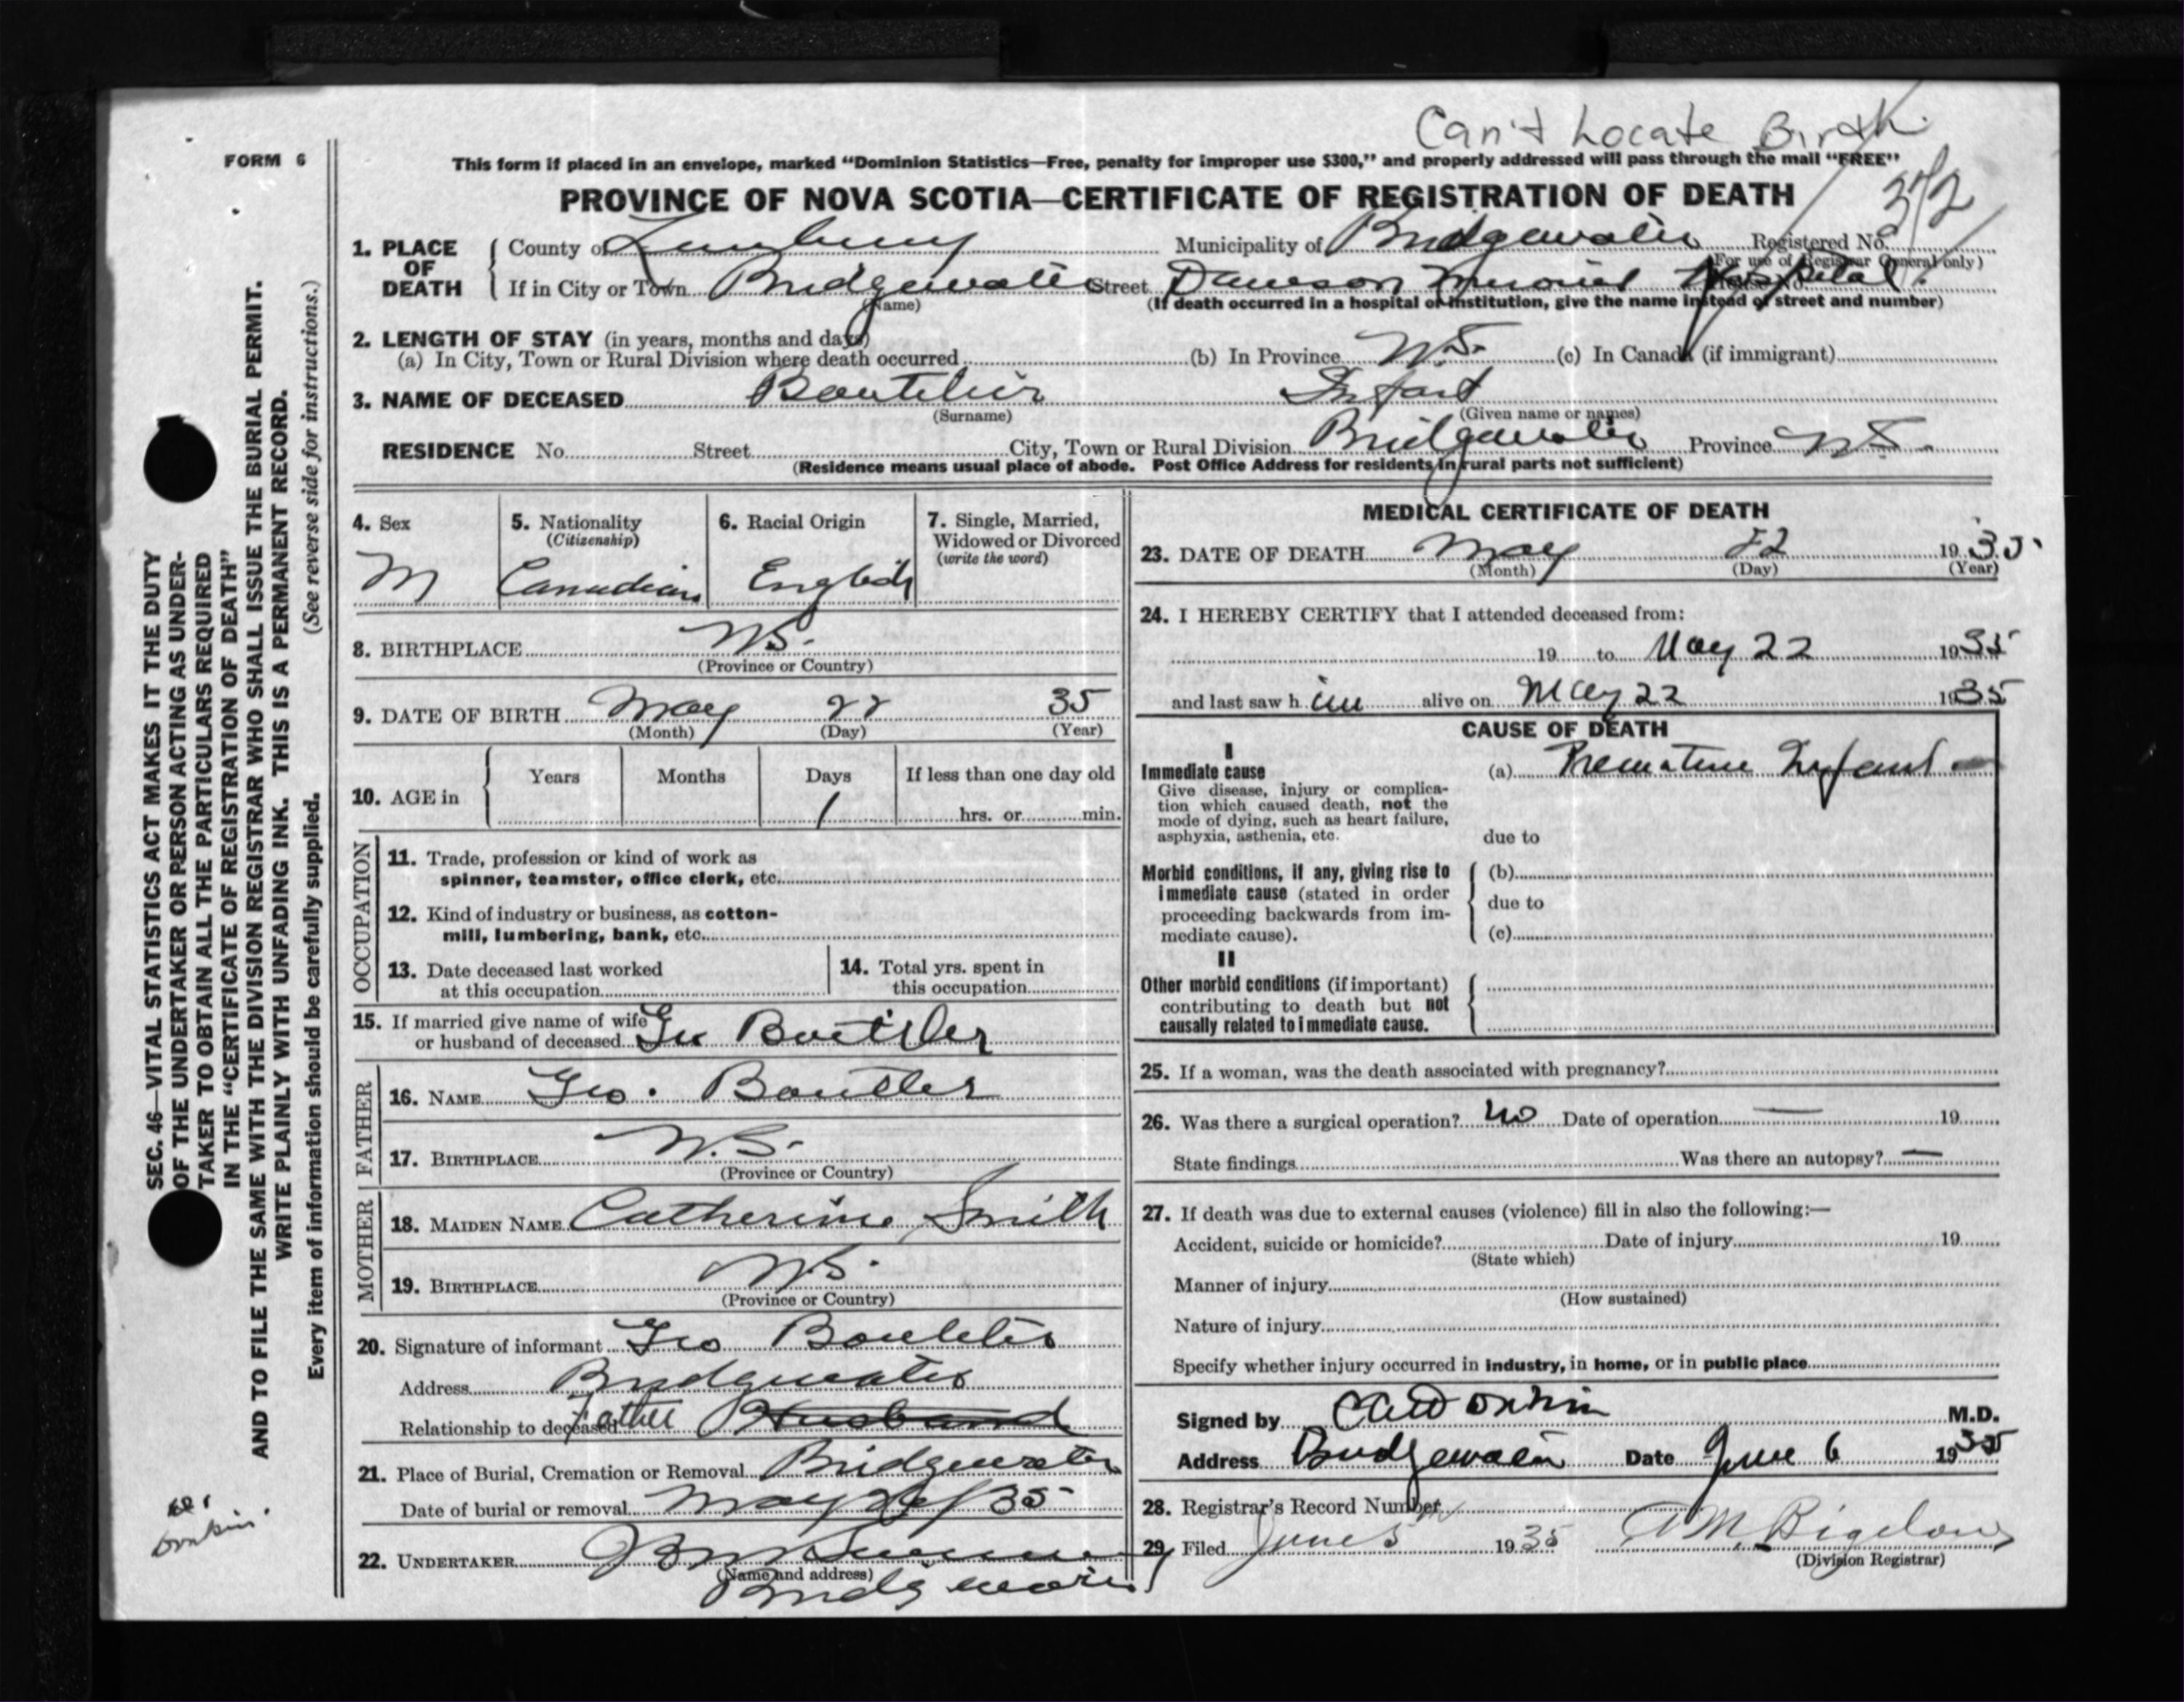 Can't Locate Birth.
FORM 6
This form if placed in an envelope, marked “Dominion Statistics—Free, penalty for improper use $300,” and properly addressed will pass through the mail “FREE”
PROVINCE OF NOVA SCOTIA—CERTIFICATE OF REGISTRATION OF DEATH
372
1. PLACE OF DEATH
County of Lunenburg Municipality of Bridgewater Registered No.
(For use of Registrar General only)
If in City or Town Bridgewater Street Dawson Memorial Hospital.
(Name) (If death occurred in a hospital or institution, give the name instead of street and number)
2. LENGTH OF STAY (in years, months and days)
(a) In City, Town or Rural Division where death occurred (b) In Province N.S. (c) In Canada (if immigrant)
3. NAME OF DECEASED Boutelier Infant
(Surname) (Given name or names)
RESIDENCE No. Street City, Town or Rural Division Bridgewater Province N.S.
(Residence means usual place of abode. Post Office Address for residents in rural parts not sufficient)
4. Sex M
5. Nationality (Citizenship) Canadian
6. Racial Origin English
7. Single, Married, Widowed or Divorced (write the word)
8. BIRTHPLACE N.S.
(Province or Country)
9. DATE OF BIRTH May 22 35
(Month) (Day) (Year)
10. AGE in Years Months Days If less than one day old
1 hrs. or min.
OCCUPATION
11. Trade, profession or kind of work as
spinner, teamster, office clerk, etc.
12. Kind of industry or business, as cotton-
mill, lumbering, bank, etc.
13. Date deceased last worked
at this occupation
14. Total yrs. spent in
this occupation
15. If married give name of wife
or husband of deceased Geo Boutiler
FATHER
16. NAME Geo. Boutler
17. BIRTHPLACE N.S.
(Province or Country)
MOTHER
18. MAIDEN NAME Catherine Smith
19. BIRTHPLACE N.S.
(Province or Country)
20. Signature of informant Geo Boutelier
Address Bridgewater
Relationship to deceased Father Husband
21. Place of Burial, Cremation or Removal Bridgewater
Date of burial or removal May 26/35
22. UNDERTAKER
(Name and address)
Bridgewater
MEDICAL CERTIFICATE OF DEATH
23. DATE OF DEATH May 22 1935
(Month) (Day) (Year)
24. I HEREBY CERTIFY that I attended deceased from:
19 to May 22 1935
and last saw him alive on May 22 1935
CAUSE OF DEATH
I
Immediate cause (a) Premature Infant
Give disease, injury or complica-
tion which caused death, not the
mode of dying, such as heart failure,
asphyxia, asthenia, etc. due to
Morbid conditions, if any, giving rise to (b)
immediate cause (stated in order due to
proceeding backwards from im-
mediate cause). (c)
II
Other morbid conditions (if important)
contributing to death but not
causally related to immediate cause.
25. If a woman, was the death associated with pregnancy?
26. Was there a surgical operation? no Date of operation — 19
State findings Was there an autopsy? —
27. If death was due to external causes (violence) fill in also the following:—
Accident, suicide or homicide? Date of injury 19
(State which)
Manner of injury
(How sustained)
Nature of injury
Specify whether injury occurred in industry, in home, or in public place
Signed by CA Donkin M.D.
Address Bridgewater Date June 6 1935
28. Registrar's Record Number
29. Filed June 5th 1935 A M. Bigelow
(Division Registrar)
SEC. 46—VITAL STATISTICS ACT MAKES IT THE DUTY
OF THE UNDERTAKER OR PERSON ACTING AS UNDER-
TAKER TO OBTAIN ALL THE PARTICULARS REQUIRED
IN THE “CERTIFICATE OF REGISTRATION OF DEATH”
AND TO FILE THE SAME WITH THE DIVISION REGISTRAR WHO SHALL ISSUE THE BURIAL PERMIT.
WRITE PLAINLY WITH UNFADING INK. THIS IS A PERMANENT RECORD.
Every item of information should be carefully supplied. (See reverse side for instructions.)
Donkin.